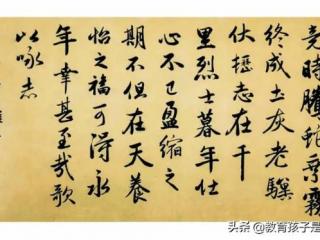 竟時騰蛇乘霧
終成土灰老驥
伏櫪志在千
里烈士暮年壮
心不已盈縮之
期不但在天養
怡之福可得永
年幸甚至哉歌
以詠志
头条 @教育孩子是